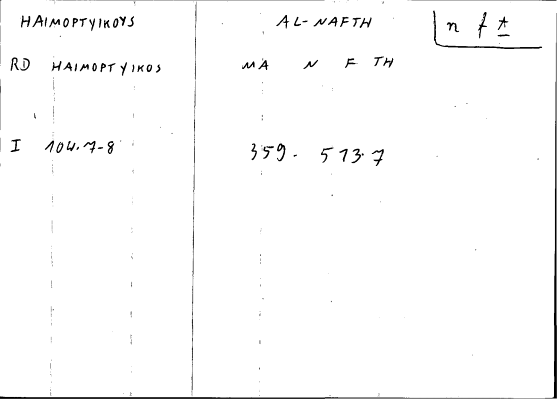 HAIMOPTYIKOYS AL-NAFTH n f ṯ
RD HAIMOPTYIKOS MA N F TH
I 104.7-8 359. 513.7